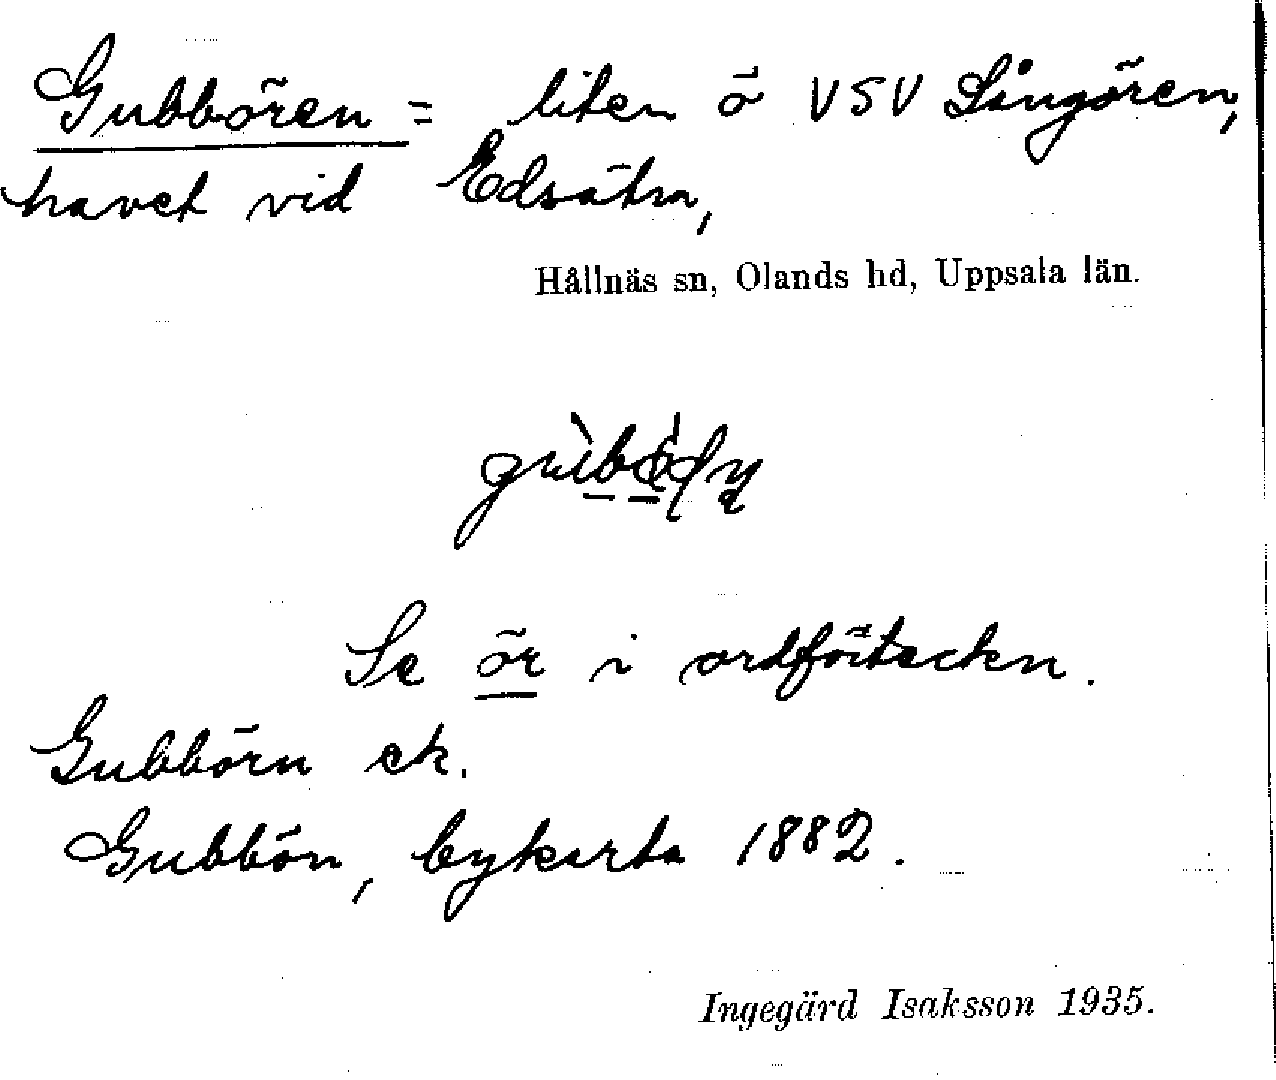 Gubbören = liten ö VSV Långören,
havet vid Edsätra,
Hållnäs sn, Olands hd, Uppsala län.
Se ör i ordförteckn.
Gubbörn ek.
Gubbön, bykarta 1882.
Ingegärd Isaksson 1935.